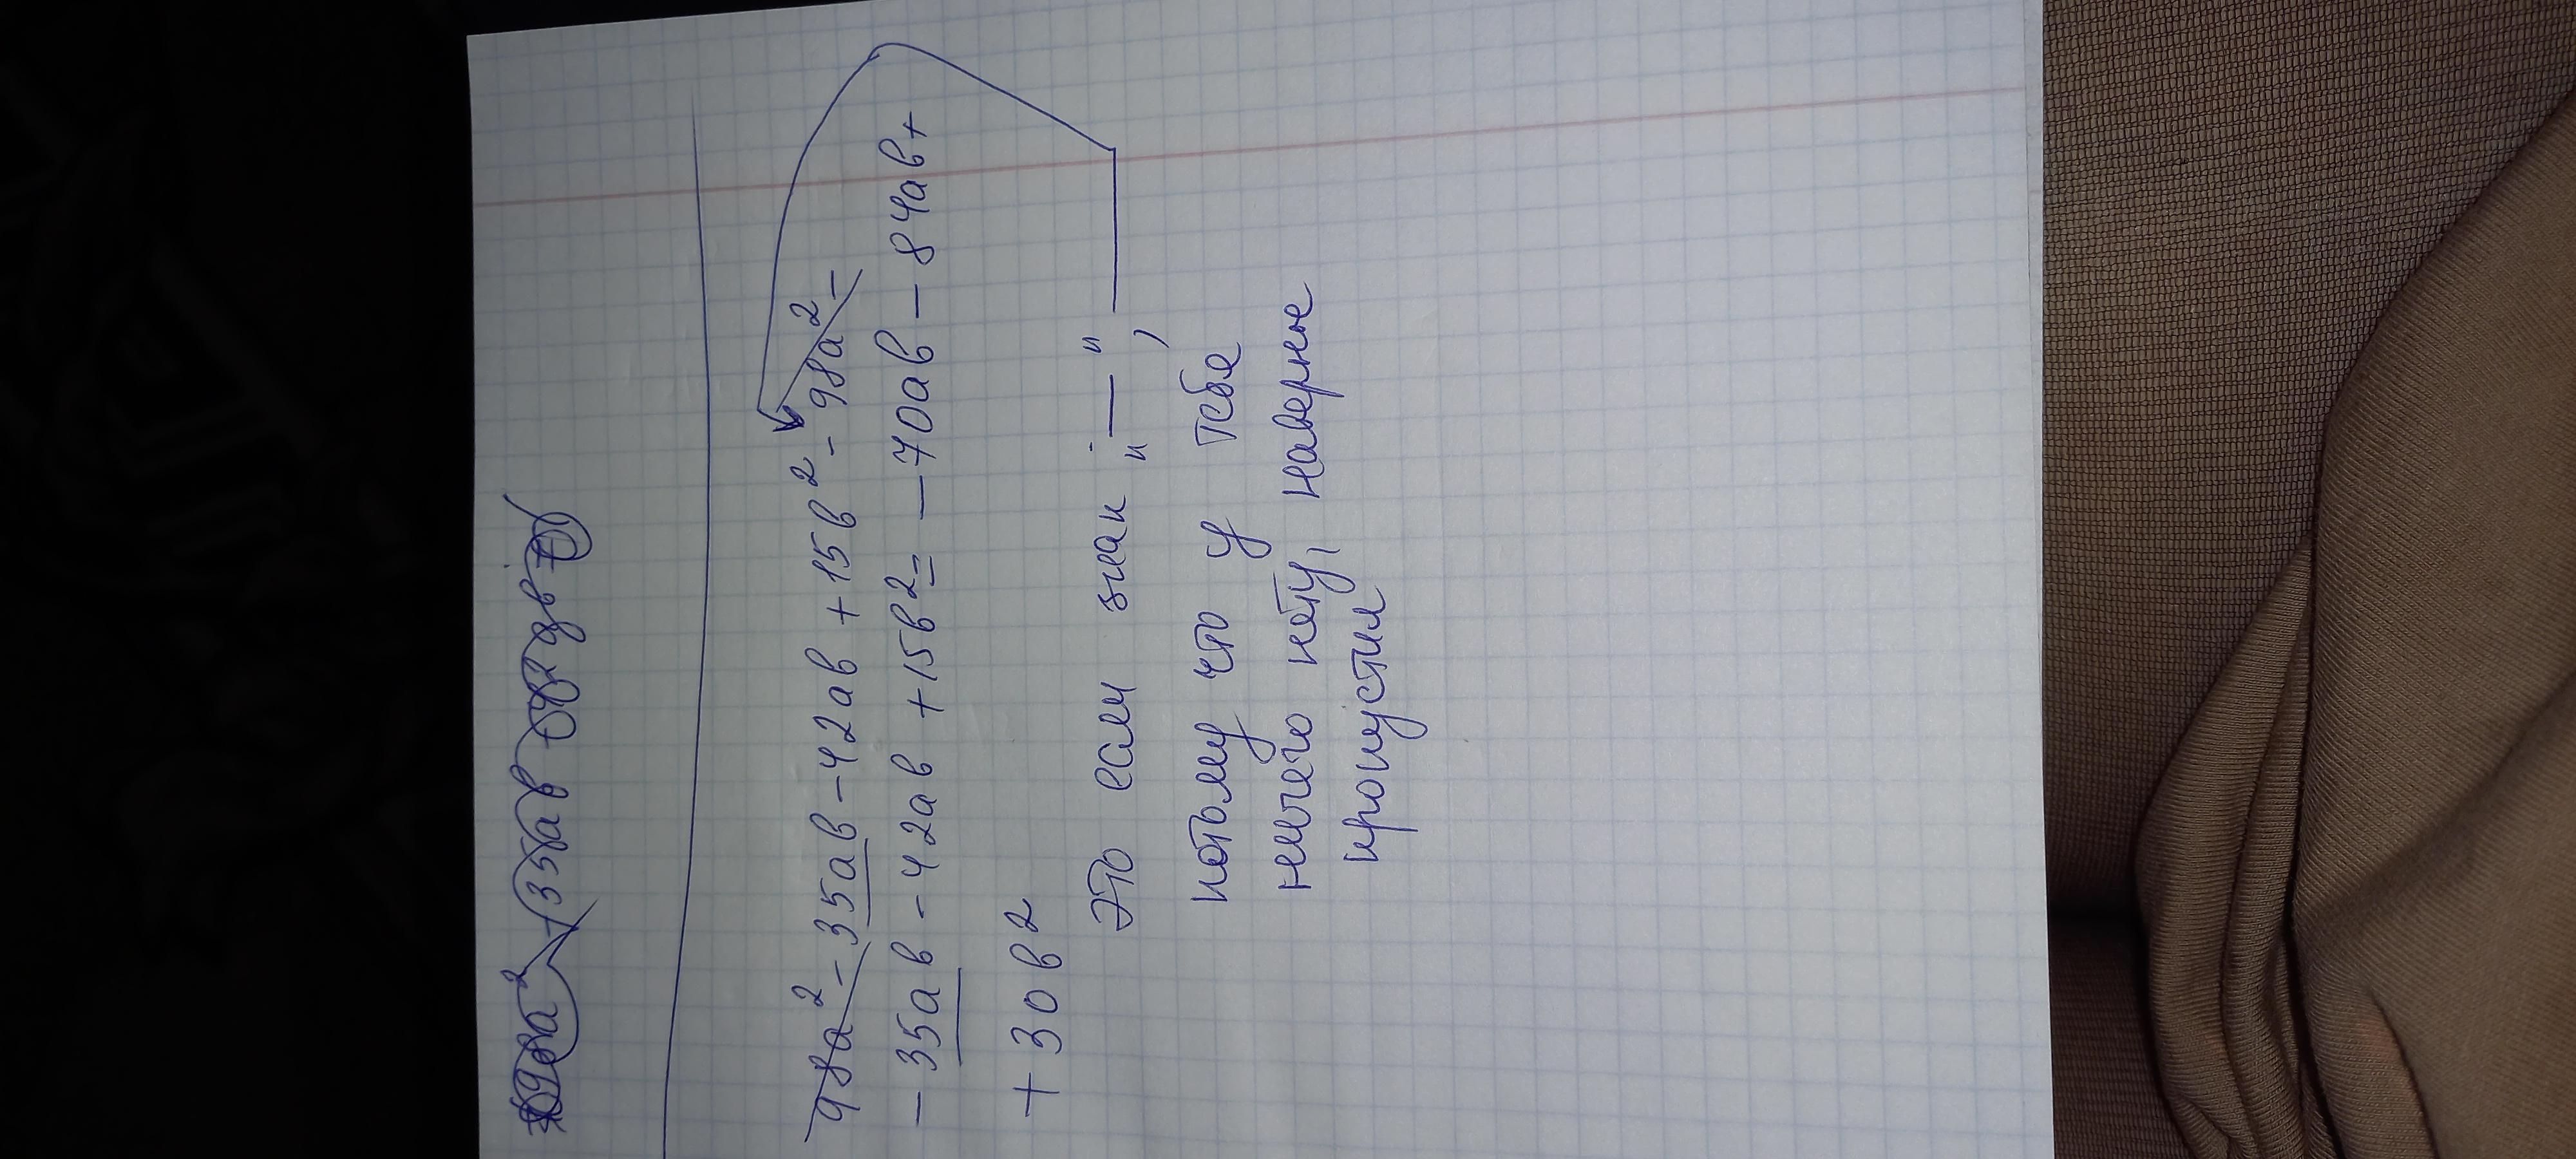 98a² - 35ab - 42ab + 15b² - 98a² -
- 35ab - 42ab + 15b² = - 70ab - 84ab +
+ 30b²
Это если знак „—“,
потому что у тебя
ничего нету, наверне
пропустил